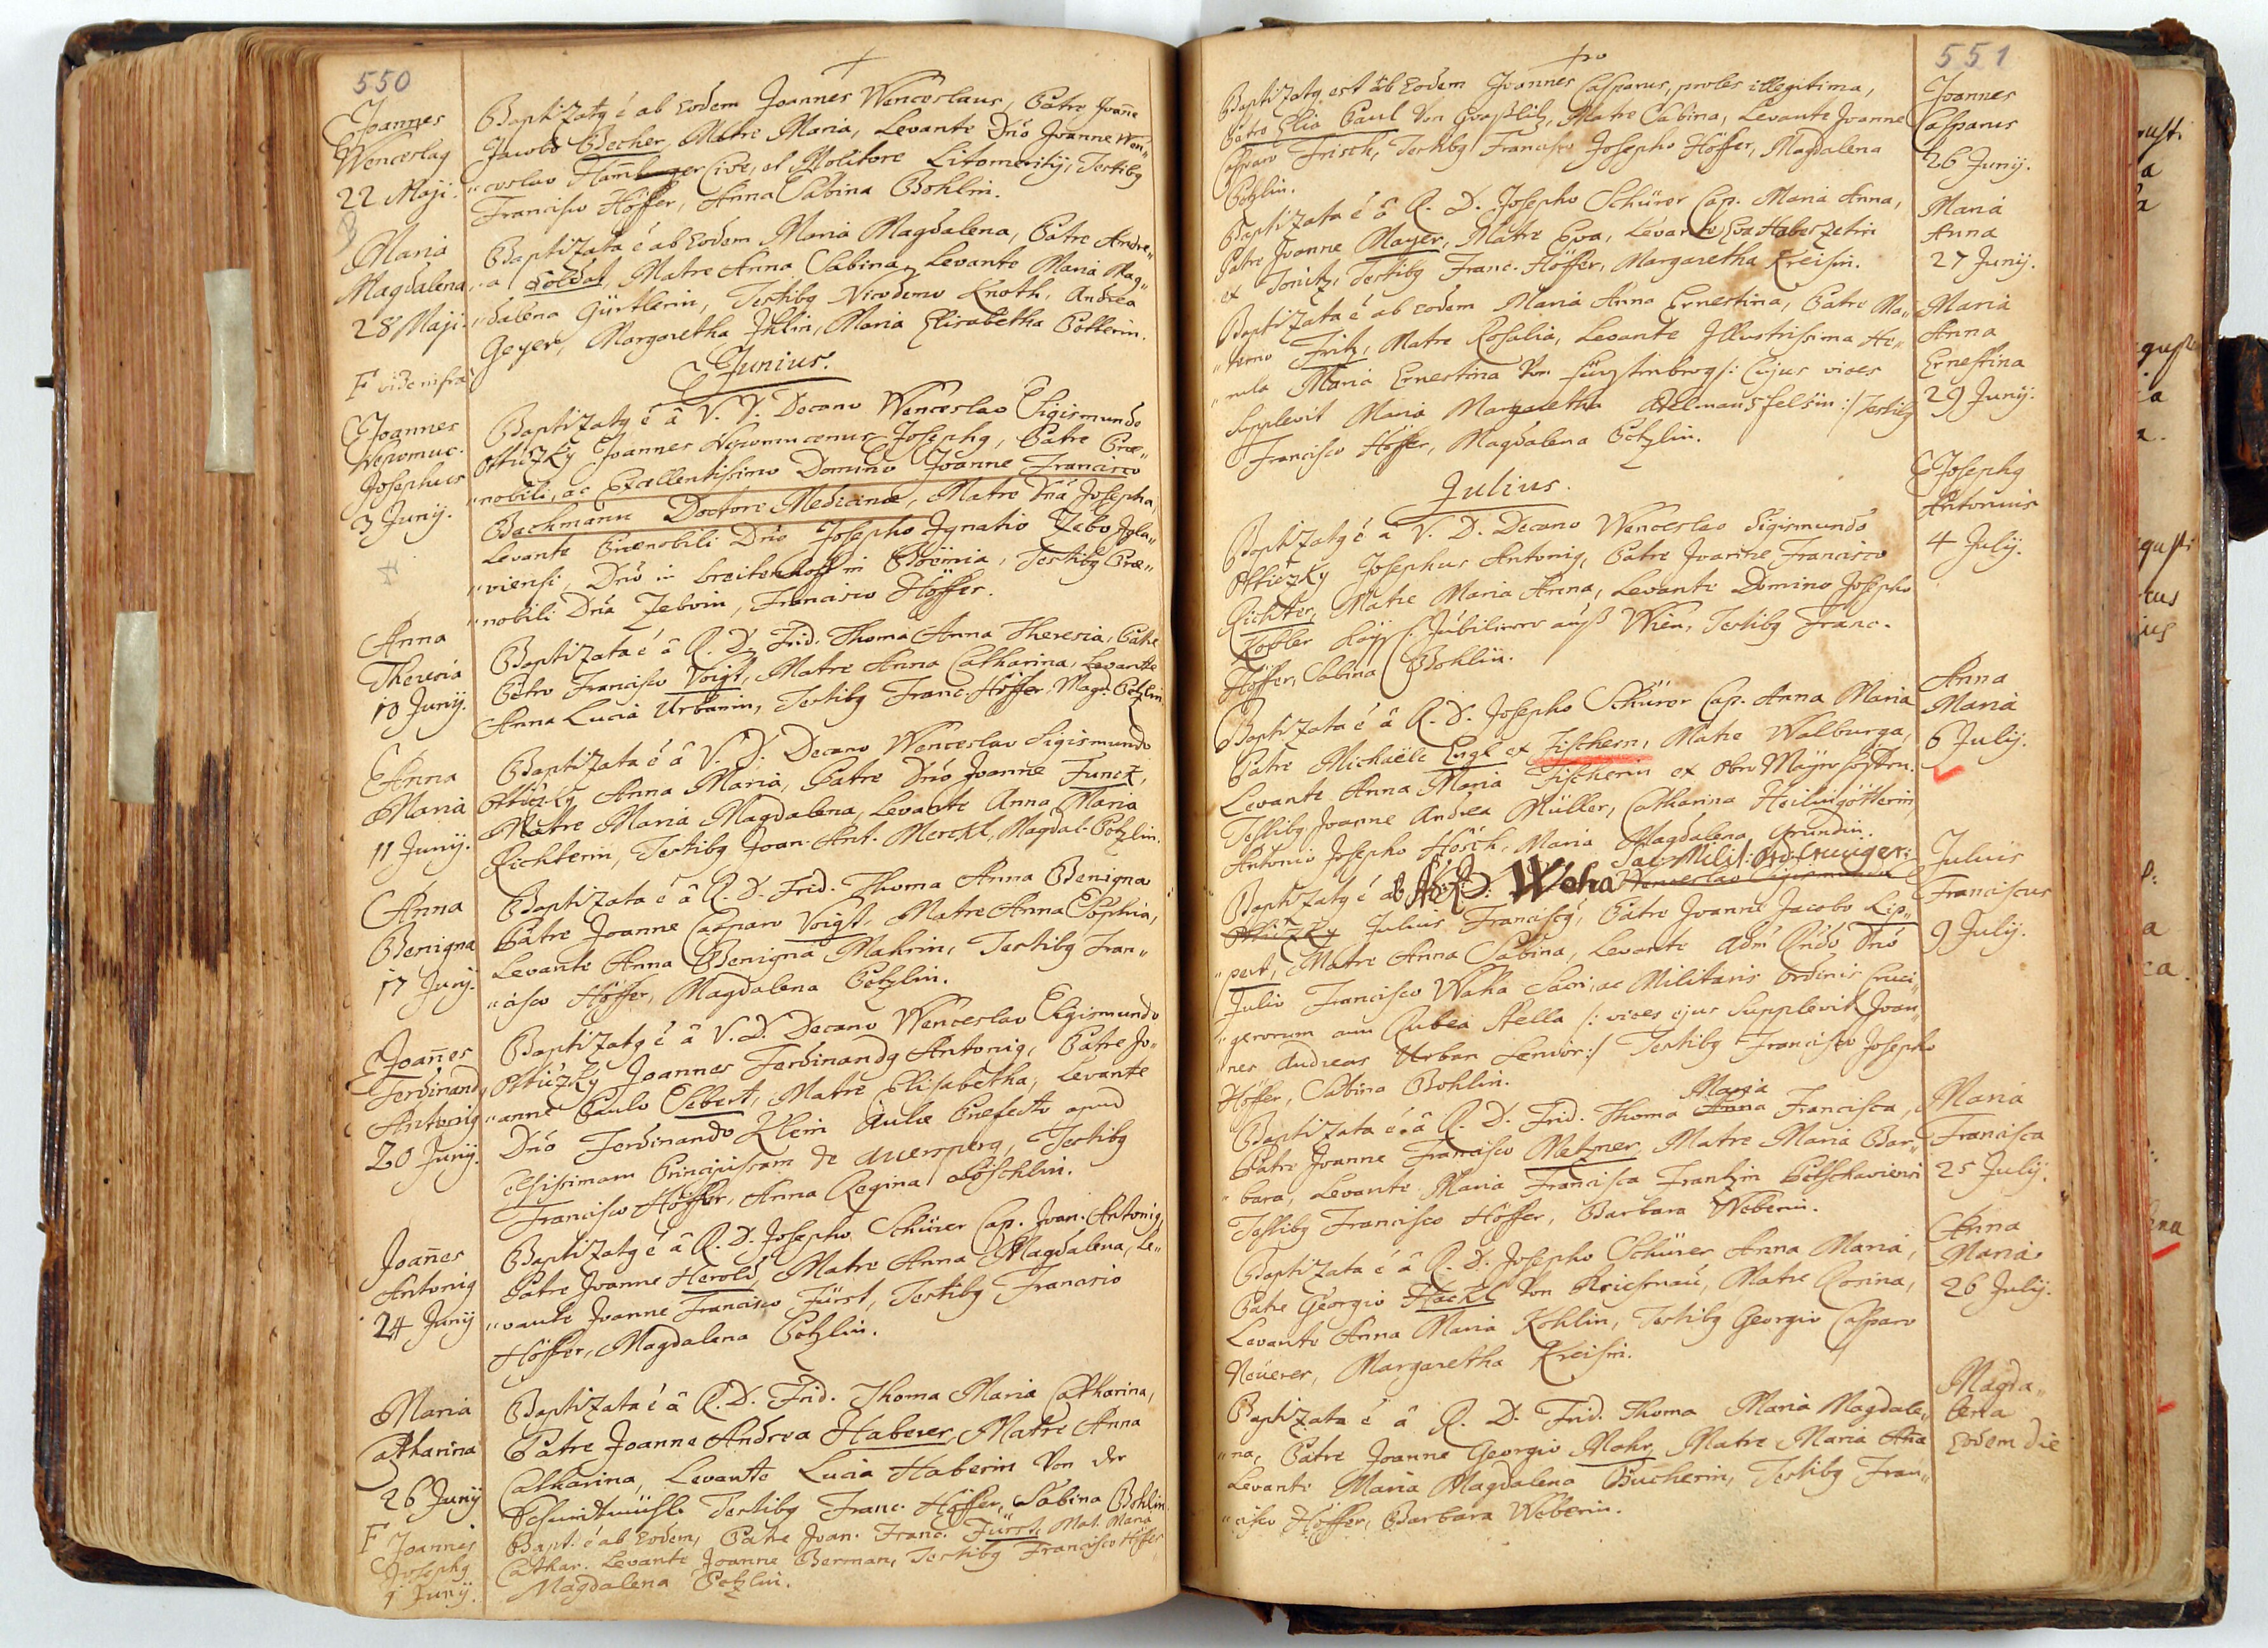 550
Joannes
Wenceslaq
22 Maji.
Baptizatq é ab Eodem Joannes Wenceslaus, Patre Joañe
Jacobo Becher, Matre Maria, Levante Dnõ Joanne Wen„
„ceslao Hamberger Cive, et Molitore Litomeritij, Testibq
Francisco Höffer, Anna Sabina Bohlin.
Maria
Magdalena
28 Maji.
Baptizata é ab Eodem Maria Magdalena, Patre Andre„
„a Soldat, Matre Anna Sabina, Levante Maria Mag„
„dalena Gürtlerin, Testibq Nicodemo Knoth, Andrea
Geyer, Margaretha Ihlin, Maria Elisabetha Potterin.
F vide infra
Junius.
Joannes
Nepomuc.
Josephus
3 Junij.
Baptizatq é â V. D. Decano Wenceslao Sigismundo
Otticzky Joannes Nepomucenus Josephq, Patre Præ„
„nobili, ac Excellentissimo Domino Joanne Francisco
Bachmann Doctore Medicinæ, Matre Dnã Josepha,
Levante Prænobili Dnõ Josepho Ignatio Zebo Igla„
„viensi, Dnõ in Breitenhoff in Böemia, Testibq Præ„
„nobili Dnã Zeboin, Francisco Höffer.
Anna
Theresia
10 Junij.
Baptizata é â R. D. Frid. Thoma Anna Theresia, Patre
Petro Francisco Voigt, Matre Anna Catharina, Levante
Anna Lucia Urbanin, Testibq Franc. Höffer, Magd. Potzlin.
Anna
Maria
11 Junij.
Baptizata é â V. D. Decano Wenceslao Sigismundo
Otticzky Anna Maria, Patre Dnõ Joanne Funck,
Matre Maria Magdalena, Levante Anna Maria
Richterin, Testibq Joan. Ant. Merckl, Magdal. Potzlin.
Anna
Benigna
17 Junij.
Baptizata é â R. D. Frid. Thoma Anna Benigna
Patre Joanne Casparo Voigt, Matre Anna Sophia,
Levante Anna Benigna Mahrin, Testibq Fran„
„cisco Höffer, Magdalena Potzlin.
Joañes
Ferdinandq
Antonig
20 Junij.
Baptizatq é â V. D. Decano Wenceslao Sigismundo
Otticzky Joannes Ferdinandq Antonig, Patre Jo„
„anne Paulo Sebert, Matre Elisabetha, Levante
Dnõ Ferdinando Klein Aulæ Præfecto apud
Elsissimam Principissam de Auersperg, Testibq
Francisco Höffer, Anna Regina Löschlin.
Joañes
Antonig
24 Junij
Baptizatq é â R. D. Josepho Schürer Cap. Joan. Antonig,
Patre Joanne Herold, Matre Anna Magdalena, Le„
„vante Joanne Francisco Fürst, Testibq Francisco
Höffer, Magdalena Potzlin.
Maria
Catharina
26 Junij
Baptizata é â R. D. Frid. Thoma Maria Catharina,
Patre Joanne Andrea Haberer, Matre Anna
Catharina, Levante Lucia Haberin Von der
Schmidtmühl. Testibq Franc. Höffer, Sabina Bohlin.
F Joannes
Josephq
1 Junij.
Bapt. é ab Eodem, Patre Joan. Franc. Fürst, Mat. Maria
Cathar. Levante Joanne Berman, Testibq Francisco Höffer
Magdalena Potzlin.
551
Baptizatq est ab Eodem Joannes Casparus, proles illegitima,
Patre Elia Paul Von Graßlitz, Matre Sabina, Levante Joanne
Casparo Frisch, Testibq Francisco Josepho Höffer, Magdalena
Potzlin.
Joannes
Casparus
26 Junij.
Baptizata é â R. D. Josepho Schürer Cap. Maria Anna,
Patre Joanne Mayer, Matre Eva, Levante Eva Haberzetin
ex Donitz, Testibq Franc. Höffer, Margaretha Kreisin.
Maria
Anna
27 Junij.
Baptizata é ab eodem Maria Anna Ernestina, Patre Ma„
„terno Fritz, Matre Rosalia, Levante Illustrissima He„
„rula Maria Ernestina Von Fürstenberg /: Cujus vices
Supplevit Maria Margaretha Adelmansfelsin :/ Testibq
Francisco Höffer, Magdalena Potzlin.
Maria
Anna
Ernestina
29 Junij.
Julius.
Baptizatq é â V. D. Decano Wenceslao Sigismundo
Otticzky Josephus Antonig, Patre Joanne Francisco
Richter, Matre Maria Anna, Levante Domino Josepho
Kobler Kayß. Jubilierer auß Wien, Testibq Franc.
Höffer, Sabina Bohlin.
Josephq
Antonius
4 Julij.
Baptizata é â R. D. Josepho Schürer Cap. Anna Maria
Patre Michaële Engl ex Fischern, Matre Walburga,
Levante Anna Maria Fischerin ex Ober Mayrhöffen.
Testibq Joanne Andrea Müller, Catharina Heilingötterin,
Antonio Josepho Hösch, Maria Magdalena Gründin.
Anna
Maria
6 Julij.
Sac: Milit: Ord: Cruciger:
Baptizatq é ab Ad: R: D: Weha Wenceslao Sigismundo
Otticzky Julius Franciscq, Patre Joanne Jacobo Lip„
„pert, Matre Anna Sabina, Levante Adm̃ Rndõ Dnõ
Julio Francisco Waha Sacri, ac Militaris Ordinis Cruci„
„gerorum cum Rubea Stella /: vices ejus Supplevit Joan„
„nes Andreas Urban Senior :/ Testibq Francisco Josepho
Höffer, Sabina Bohlin.
Julius
Franciscus
9 Julij.
Maria
Baptizata é â R. D. Frid. Thoma Anna Francisca,
Patre Joanne Francisco Metzner, Matre Maria Bar„
„bara, Levante Maria Francisca Frantzin Petschaviensi
Testibq Francisco Höffer, Barbara Weberin.
Maria
Francisca
25 Julij.
Baptizata é â R. D. Josepho Schürer Anna Maria,
Patre Georgio Hackl Von Kriesenau, Matre Rosina,
Levante Anna Maria Kohlin, Testibq Georgio Casparo
Neüerer, Margaretha Kreisin.
Anna
Maria
26 Julij.
Baptizata é â R. D. Frid. Thoma Maria Magdale„
„na, Patre Joanne Georgio Mohr, Matre Maria Aña
Levante Maria Magdalena Bucherin, Testibq Fran„
„cisco Höffer, Barbara Weberin.
Magda„
lena
Eodem die